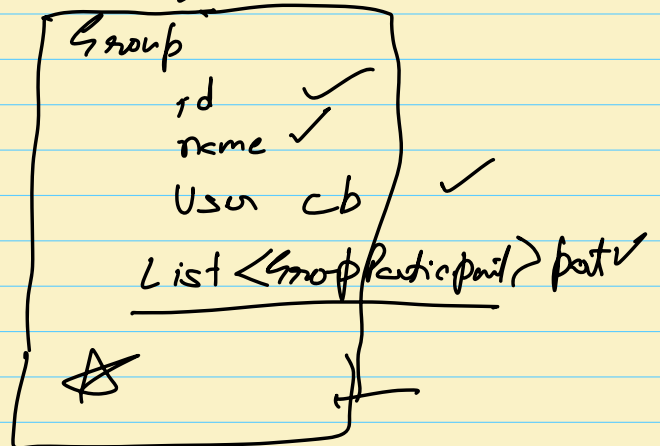 Group
id
name
User cb
List <GroupParticipant> part